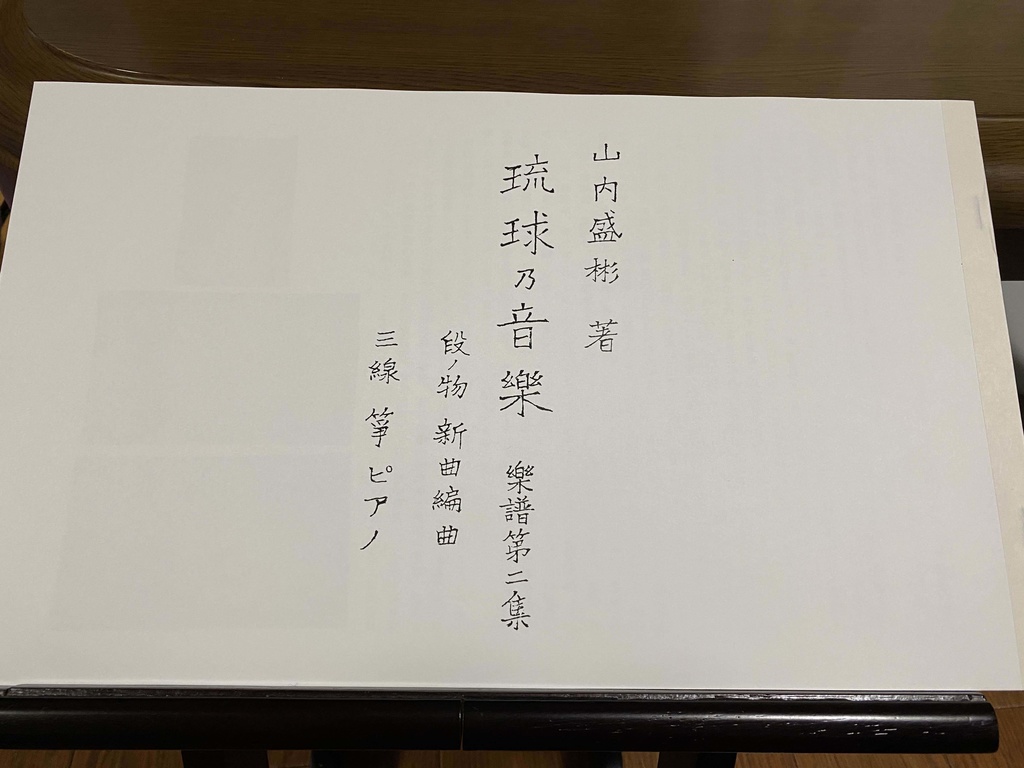 山内盛彬 著
琉球乃音樂 樂譜第二集
段ノ物 新曲編曲
三線 箏 ピアノ